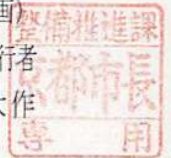 画)
行者
大作
整備推進課
京都市長
専用